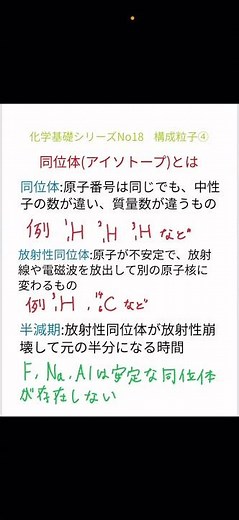 化学基礎シリーズNo18 構成粒子④
同位体(アイソトープ)とは
同位体:原子番号は同じでも、中性
子の数が違い、質量数が違うもの
例 ¹₁H ²₁H ³₁H など
放射性同位体:原子が不安定で、放射
線や電磁波を放出して別の原子核に
変わるもの
例 ³₁H , ¹⁴₆C など
半減期:放射性同位体が放射性崩
壊して元の半分になる時間
F, Na, Alは安定な同位体
が存在しない